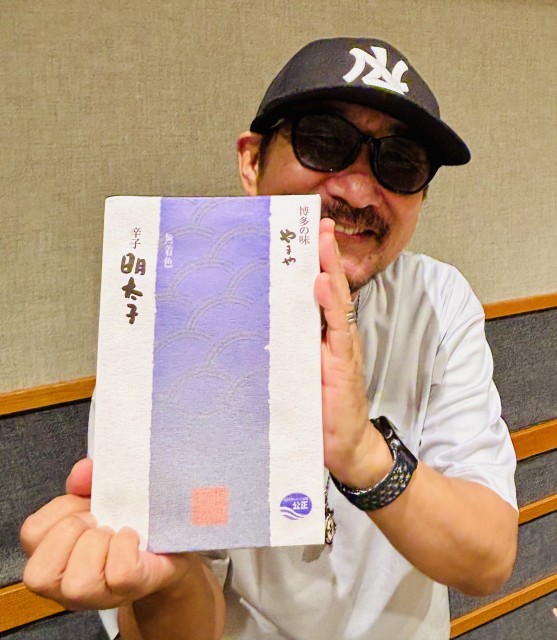 博多の味
やまや
無着色
辛子
明太子
公正
NY